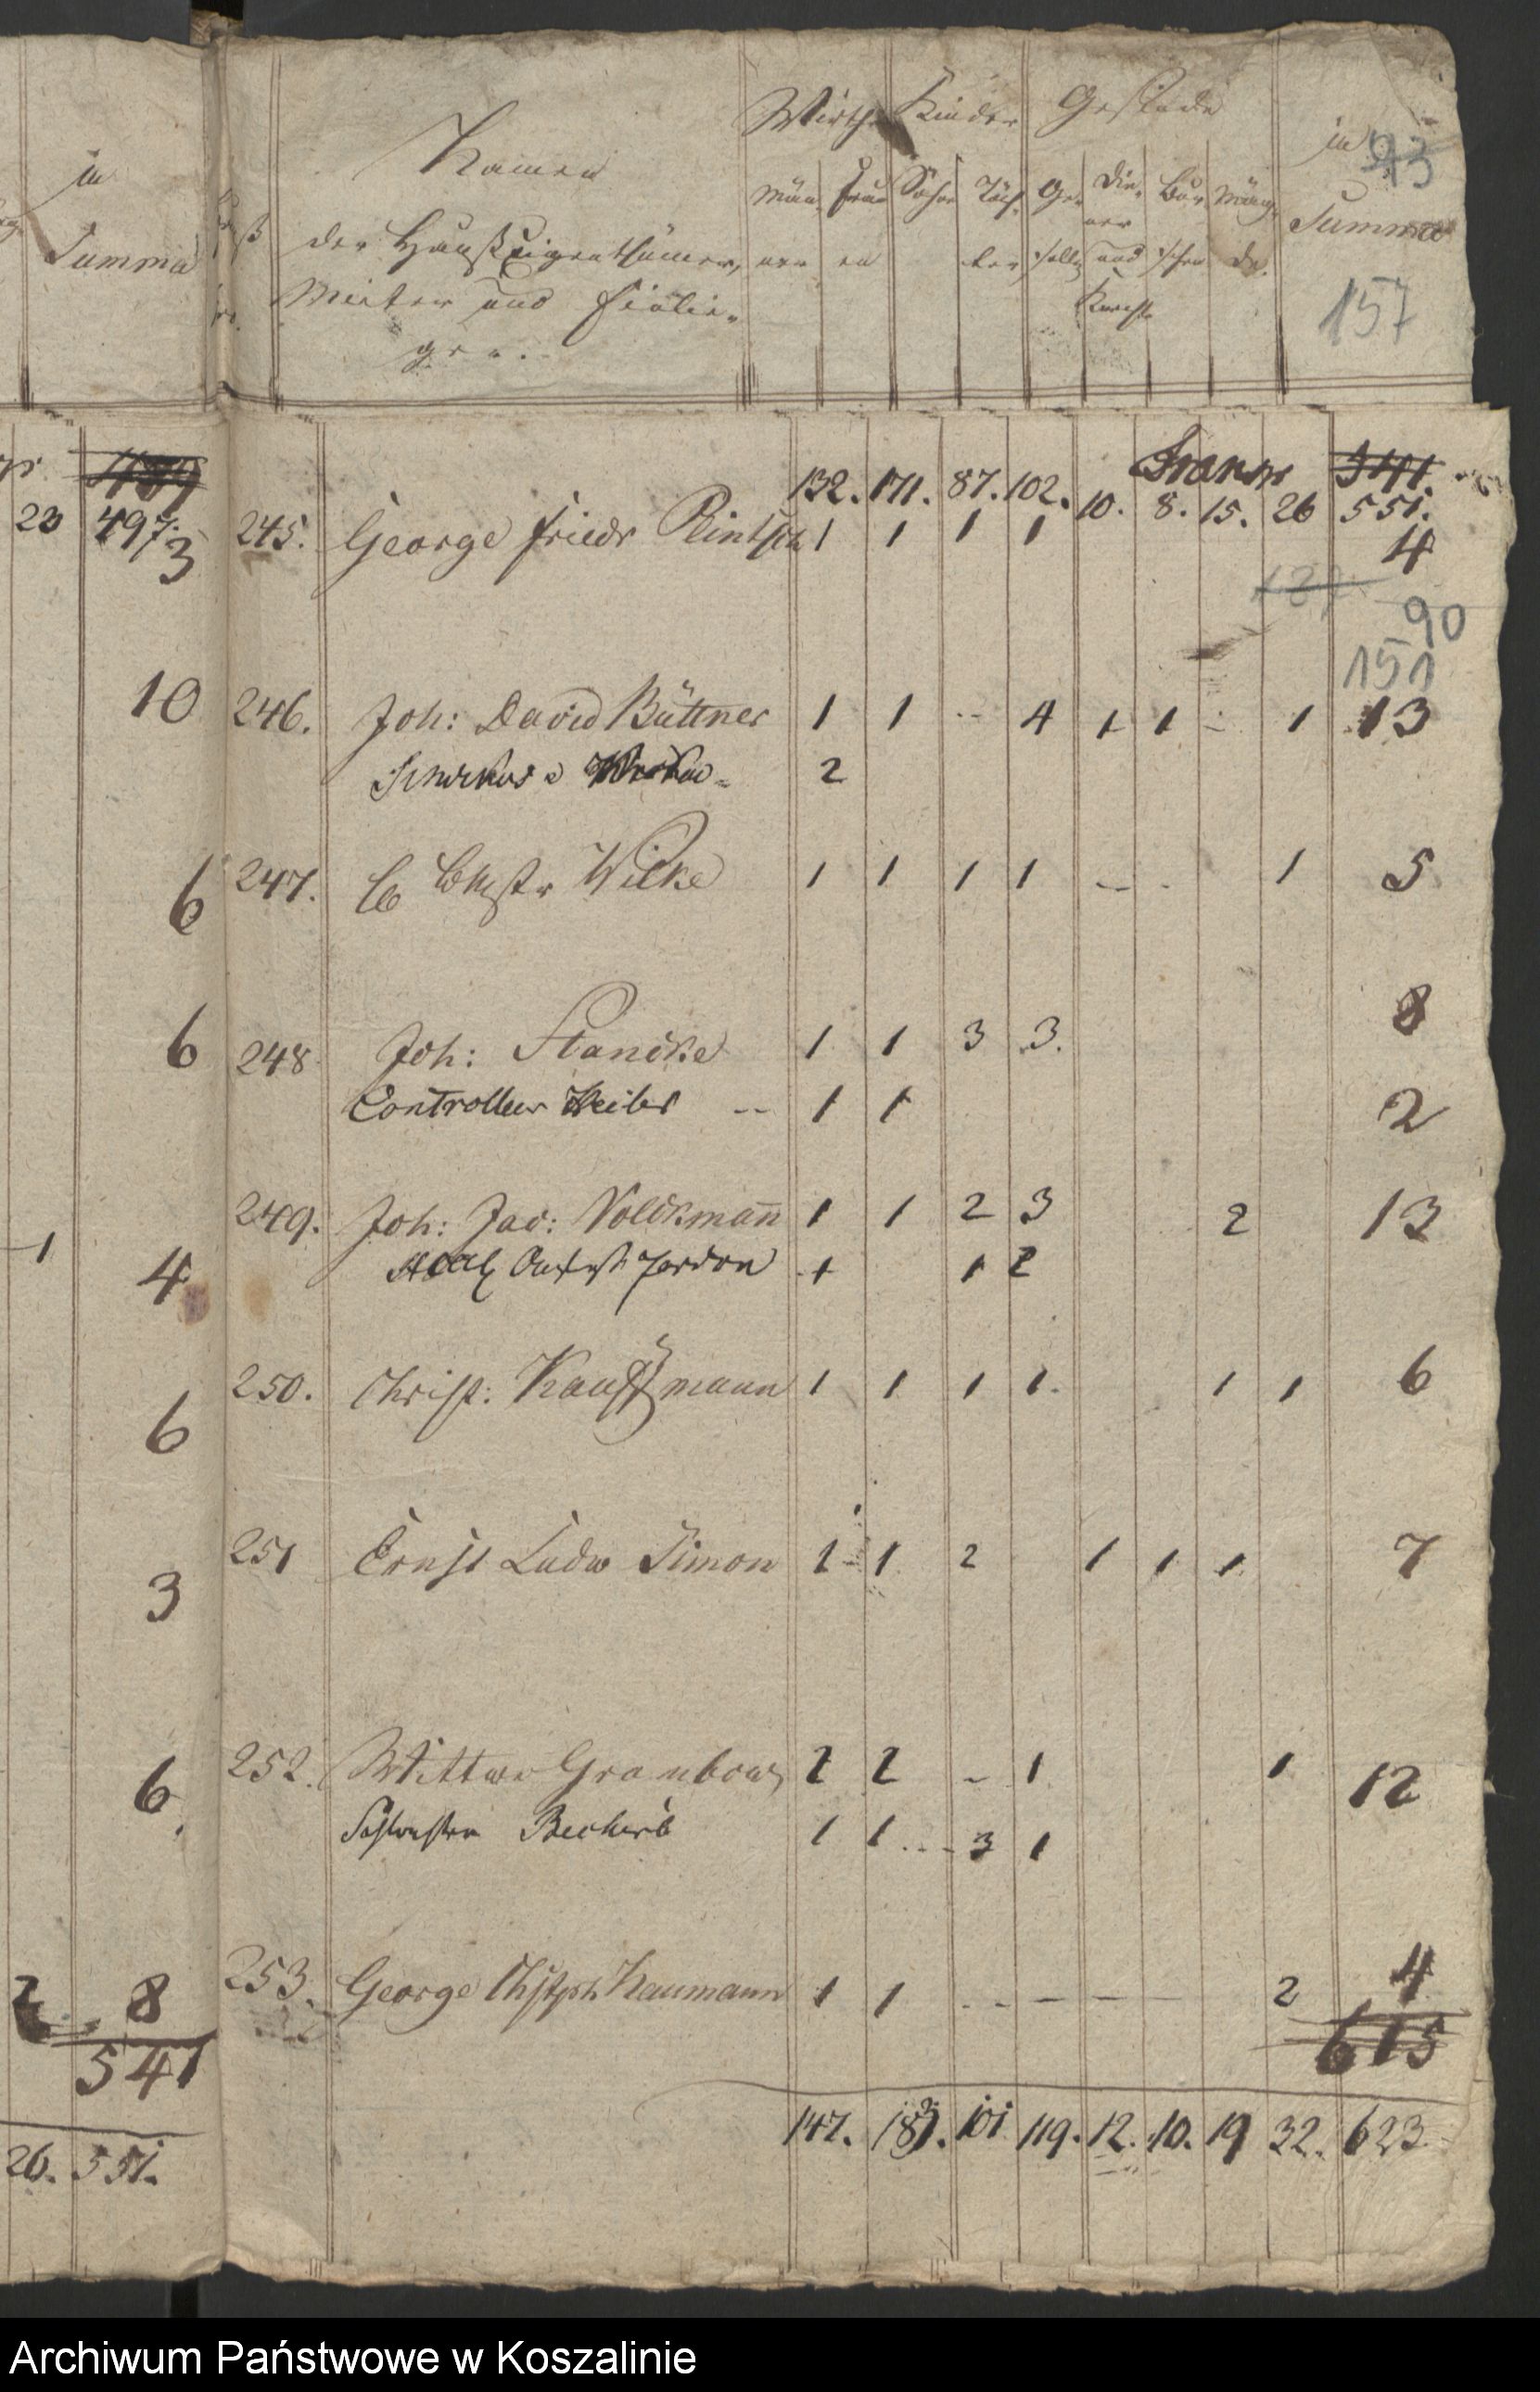 in
Summa
497.
23
3
10
6
6
1
4
6
3
6.
2 8
541
26. 551.
Namen
der Hauß Eigenthümer,
Mieter und Einlie-
ger.
Wirthe Kinder Gesinde
Män- ner
Frau en
Söhne
Töch- ter
Ge- sellen
Die- ner und Knechte
Bur- schen
Mäg- de.
in
Summa
93
157
Transp 541.
132. 171. 87. 102. 10. 8. 15. 26 551.
245. George Friedr Rintsch 1 1 1 1 4
90
151
246. Joh: David Büttner 1 1 -- 4 1 1 - 1 13
2
247. Wilke 1 1 1 1 -- - 1 5
248 Joh: Stancke 1 1 3 3. 8
Controlleur -- 1 1 2
249. Joh: Jac: Volckmann 1 1 2 3 2 13
Jordan 1 1 2
250. Christ: Kauffmann 1 1 1 1. 1 1 6
251 Ernst Ludw Simon 1 1 2 1 1 1 7
252. Wittwe Grambow 2 2 - 1 1 12
Becher 1 1 -- 3 1
253. George Chstph Naumann 1 1 -- -- -- 2 4
615
147. 183. 101 119. 12. 10. 19 32. 623.
Archiwum Państwowe w Koszalinie